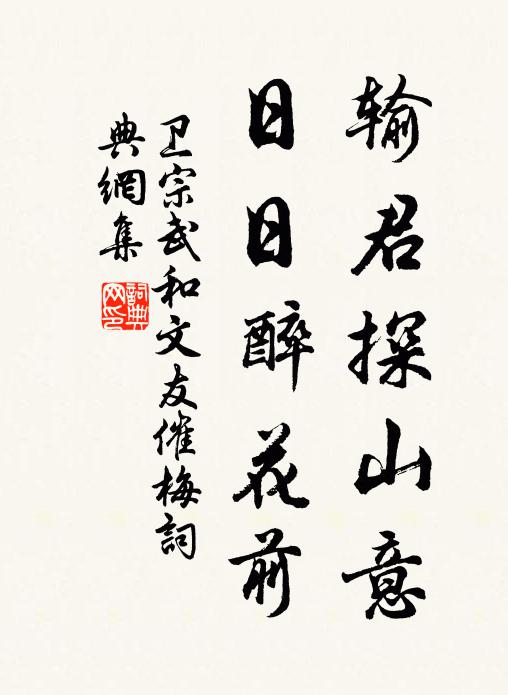 输君探山意
日日醉花前
卫宗武和文友催梅詞
典網集
詞典网印